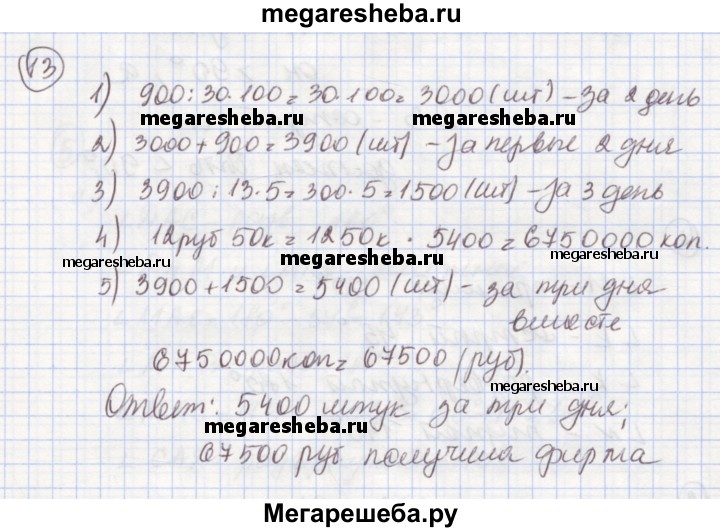 megaresheba.ru
13
1) 900 : 30 · 100 = 30 · 100 = 3000 (шт) - за 2 день
megaresheba.ru megaresheba.ru
2) 3000 + 900 = 3900 (шт) - за первые 2 дня
3) 3900 : 13 · 5 = 300 · 5 = 1500 (шт) - за 3 день
4) 12 руб 50 к = 1250 к · 5400 = 6750000 коп.
megaresheba.ru megaresheba.ru megaresheba.ru
5) 3900 + 1500 = 5400 (шт) - за три дня
вместе
6750000 коп = 67500 (руб).
megaresheba.ru
Ответ: 5400 штук за три дня;
megaresheba.ru
67500 руб получила фирма
megaresheba.ru
Мегарешеба.ру